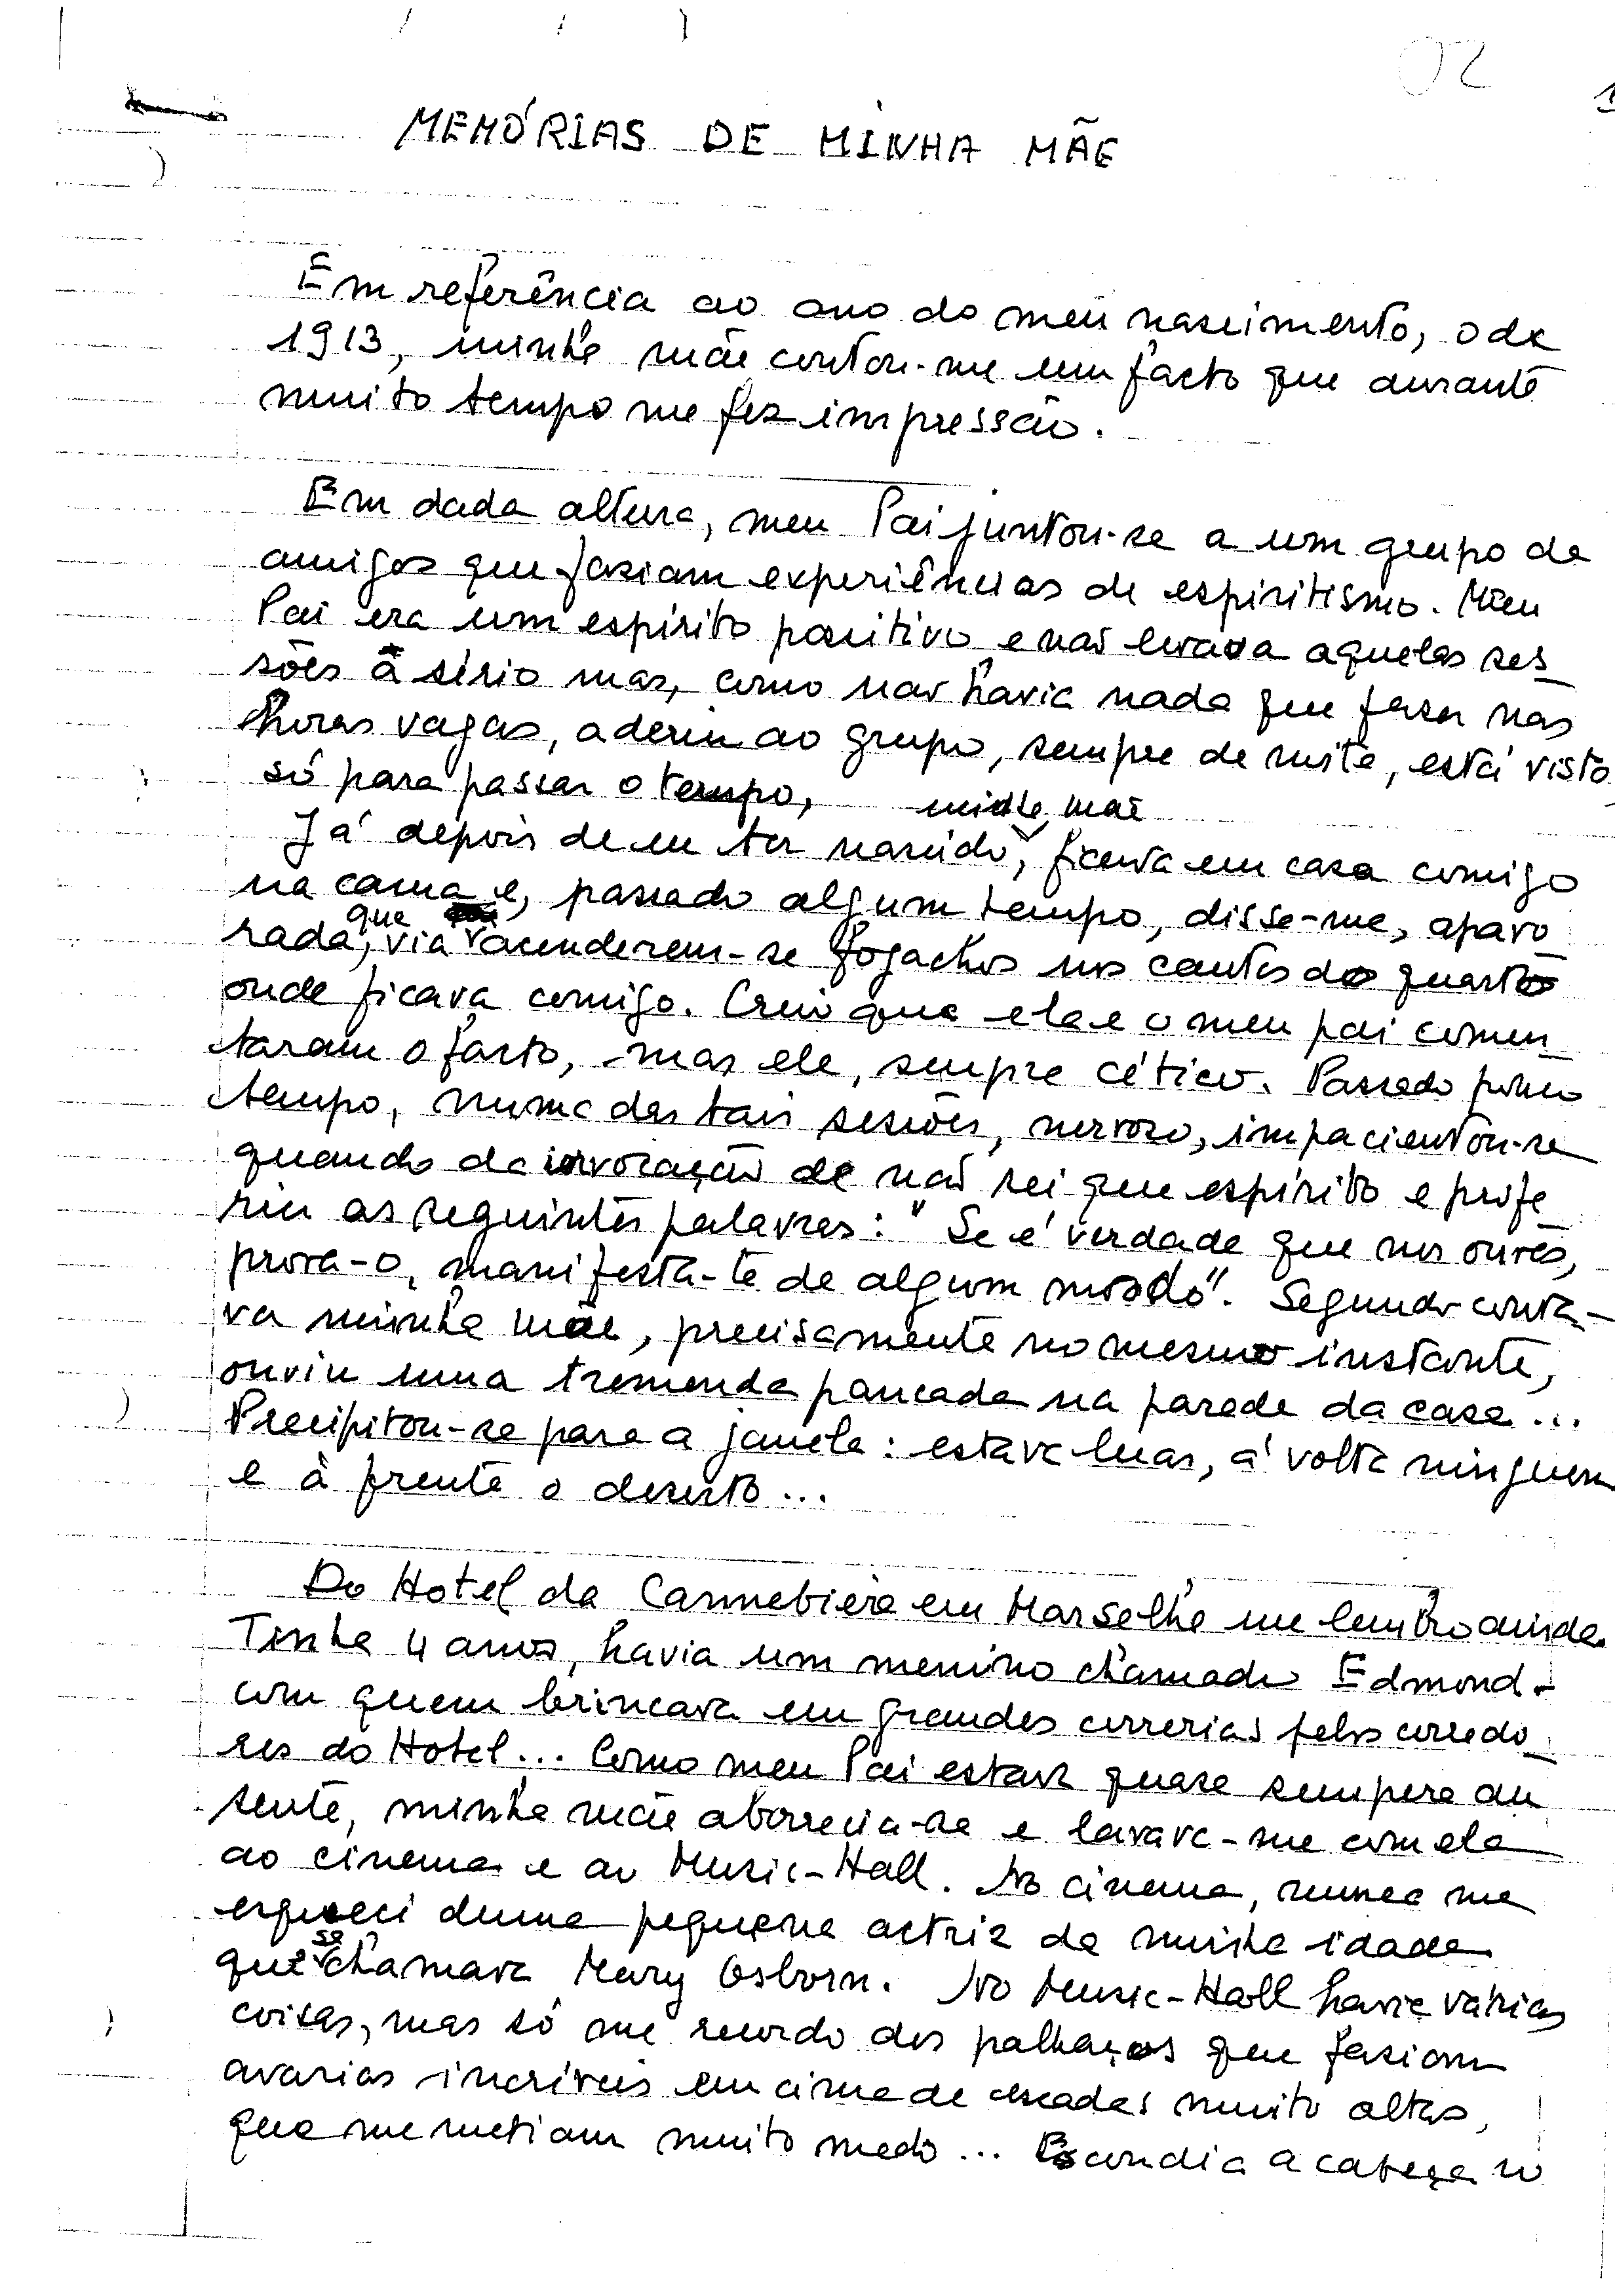 02
1
MEMÓRIAS DE MINHA MÃE
Em referência ao ano do meu nascimento, o de
1913, minha mãe contou-me um facto que durante
muito tempo me fez impressão.
Em dada altura, meu Pai juntou-se a um grupo de
amigos que faziam experiências de espiritismo. Meu
Pai era um espírito positivo e não levava aquelas ses
sões à sério mas, como não havia nada que fazer nas
horas vagas, aderiu ao grupo, sempre de noite, está visto
só para passar o tempo,
minha mãe
Já depois de eu ter nascido, ficava em casa comigo
na cama e, passado algum tempo, disse-me, apavo
rada, que via acenderem-se fogachos nos cantos do quarto
onde ficava comigo. Creio que ela e o meu pai comen
taram o facto, mas ele, sempre cético. Passado pouco
tempo, numa das tais sessões, nervoso, impacientou-se
quando da invocação de não sei que espírito e profe
riu as seguintes palavras: "Se é verdade que nos ouves,
prova-o, manifesta-te de algum modo". Segundo conta-
va minha mãe, precisamente no mesmo instante,
ouviu uma tremenda pancada na parede da casa...
Precipitou-se para a janela: estava luar, à volta ninguem
e à frente o deserto...
Do Hotel da Cannebière em Marselha me lembro ainda.
Tinha 4 anos, havia um menino chamado Edmond
com quem brincava em grandes correrias pelos corredo
res do Hotel... Como meu Pai estava quase sempere au
sente, minha mãe aborrecia-se e levava-me com ela
ao cinema e ao Music-Hall. No cinema, nunca me
esqueci duma pequena actriz da minha idade
que se chamava Mary Osborn. No Music-Hall havia várias
coisas, mas só me recordo dos palhaços que faziam
avarias incríveis em cima de escadas muito altas,
que me metiam muito medo... Escondia a cabeça no